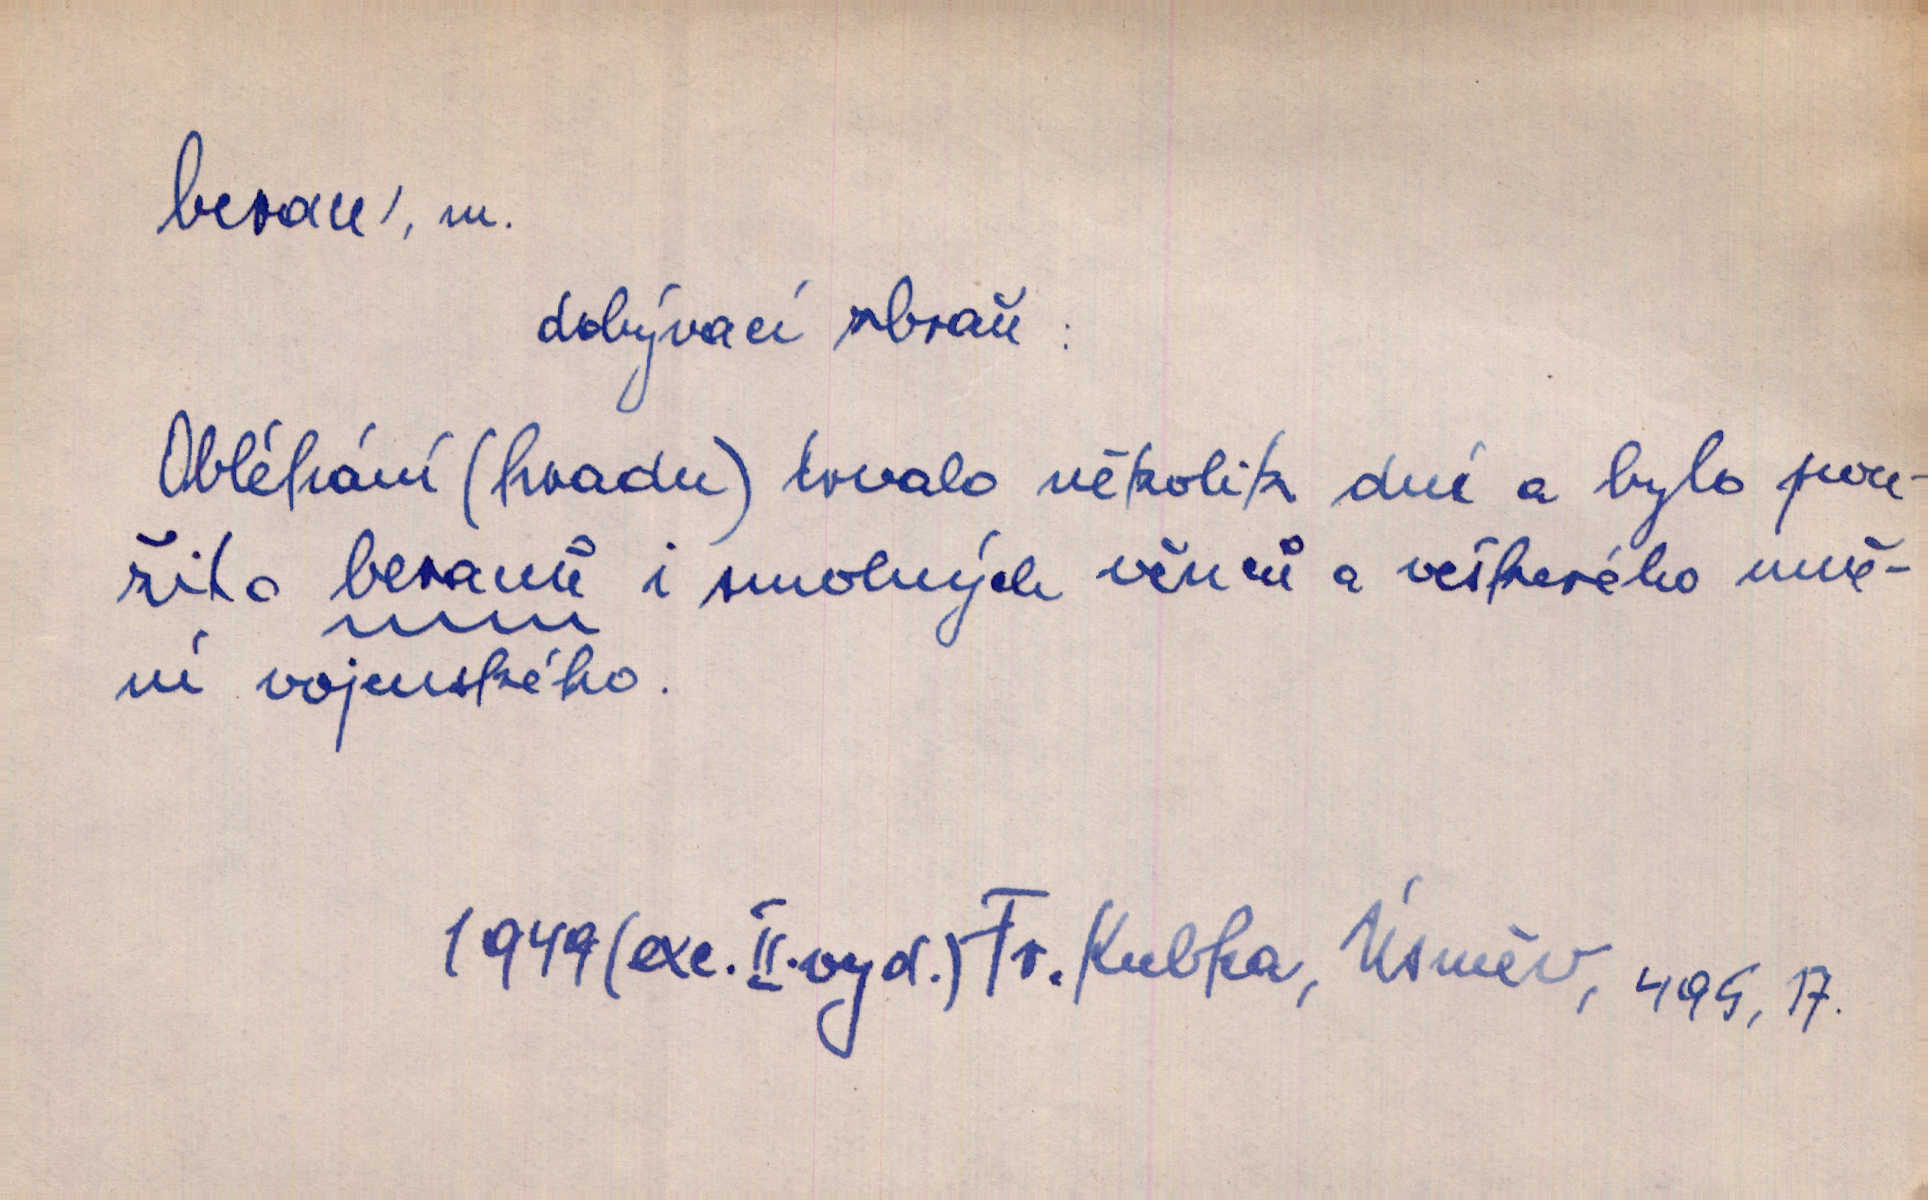 beran, m.
dobývací zbraň :
Obléhání (hradu) trvalo několik dní a bylo pou-
žito beranů i smolných věnců a veškerého umě-
ní vojenského.
1949 (exc. II. vyd.) Fr. Kubka, Úsměv, 495, 17.